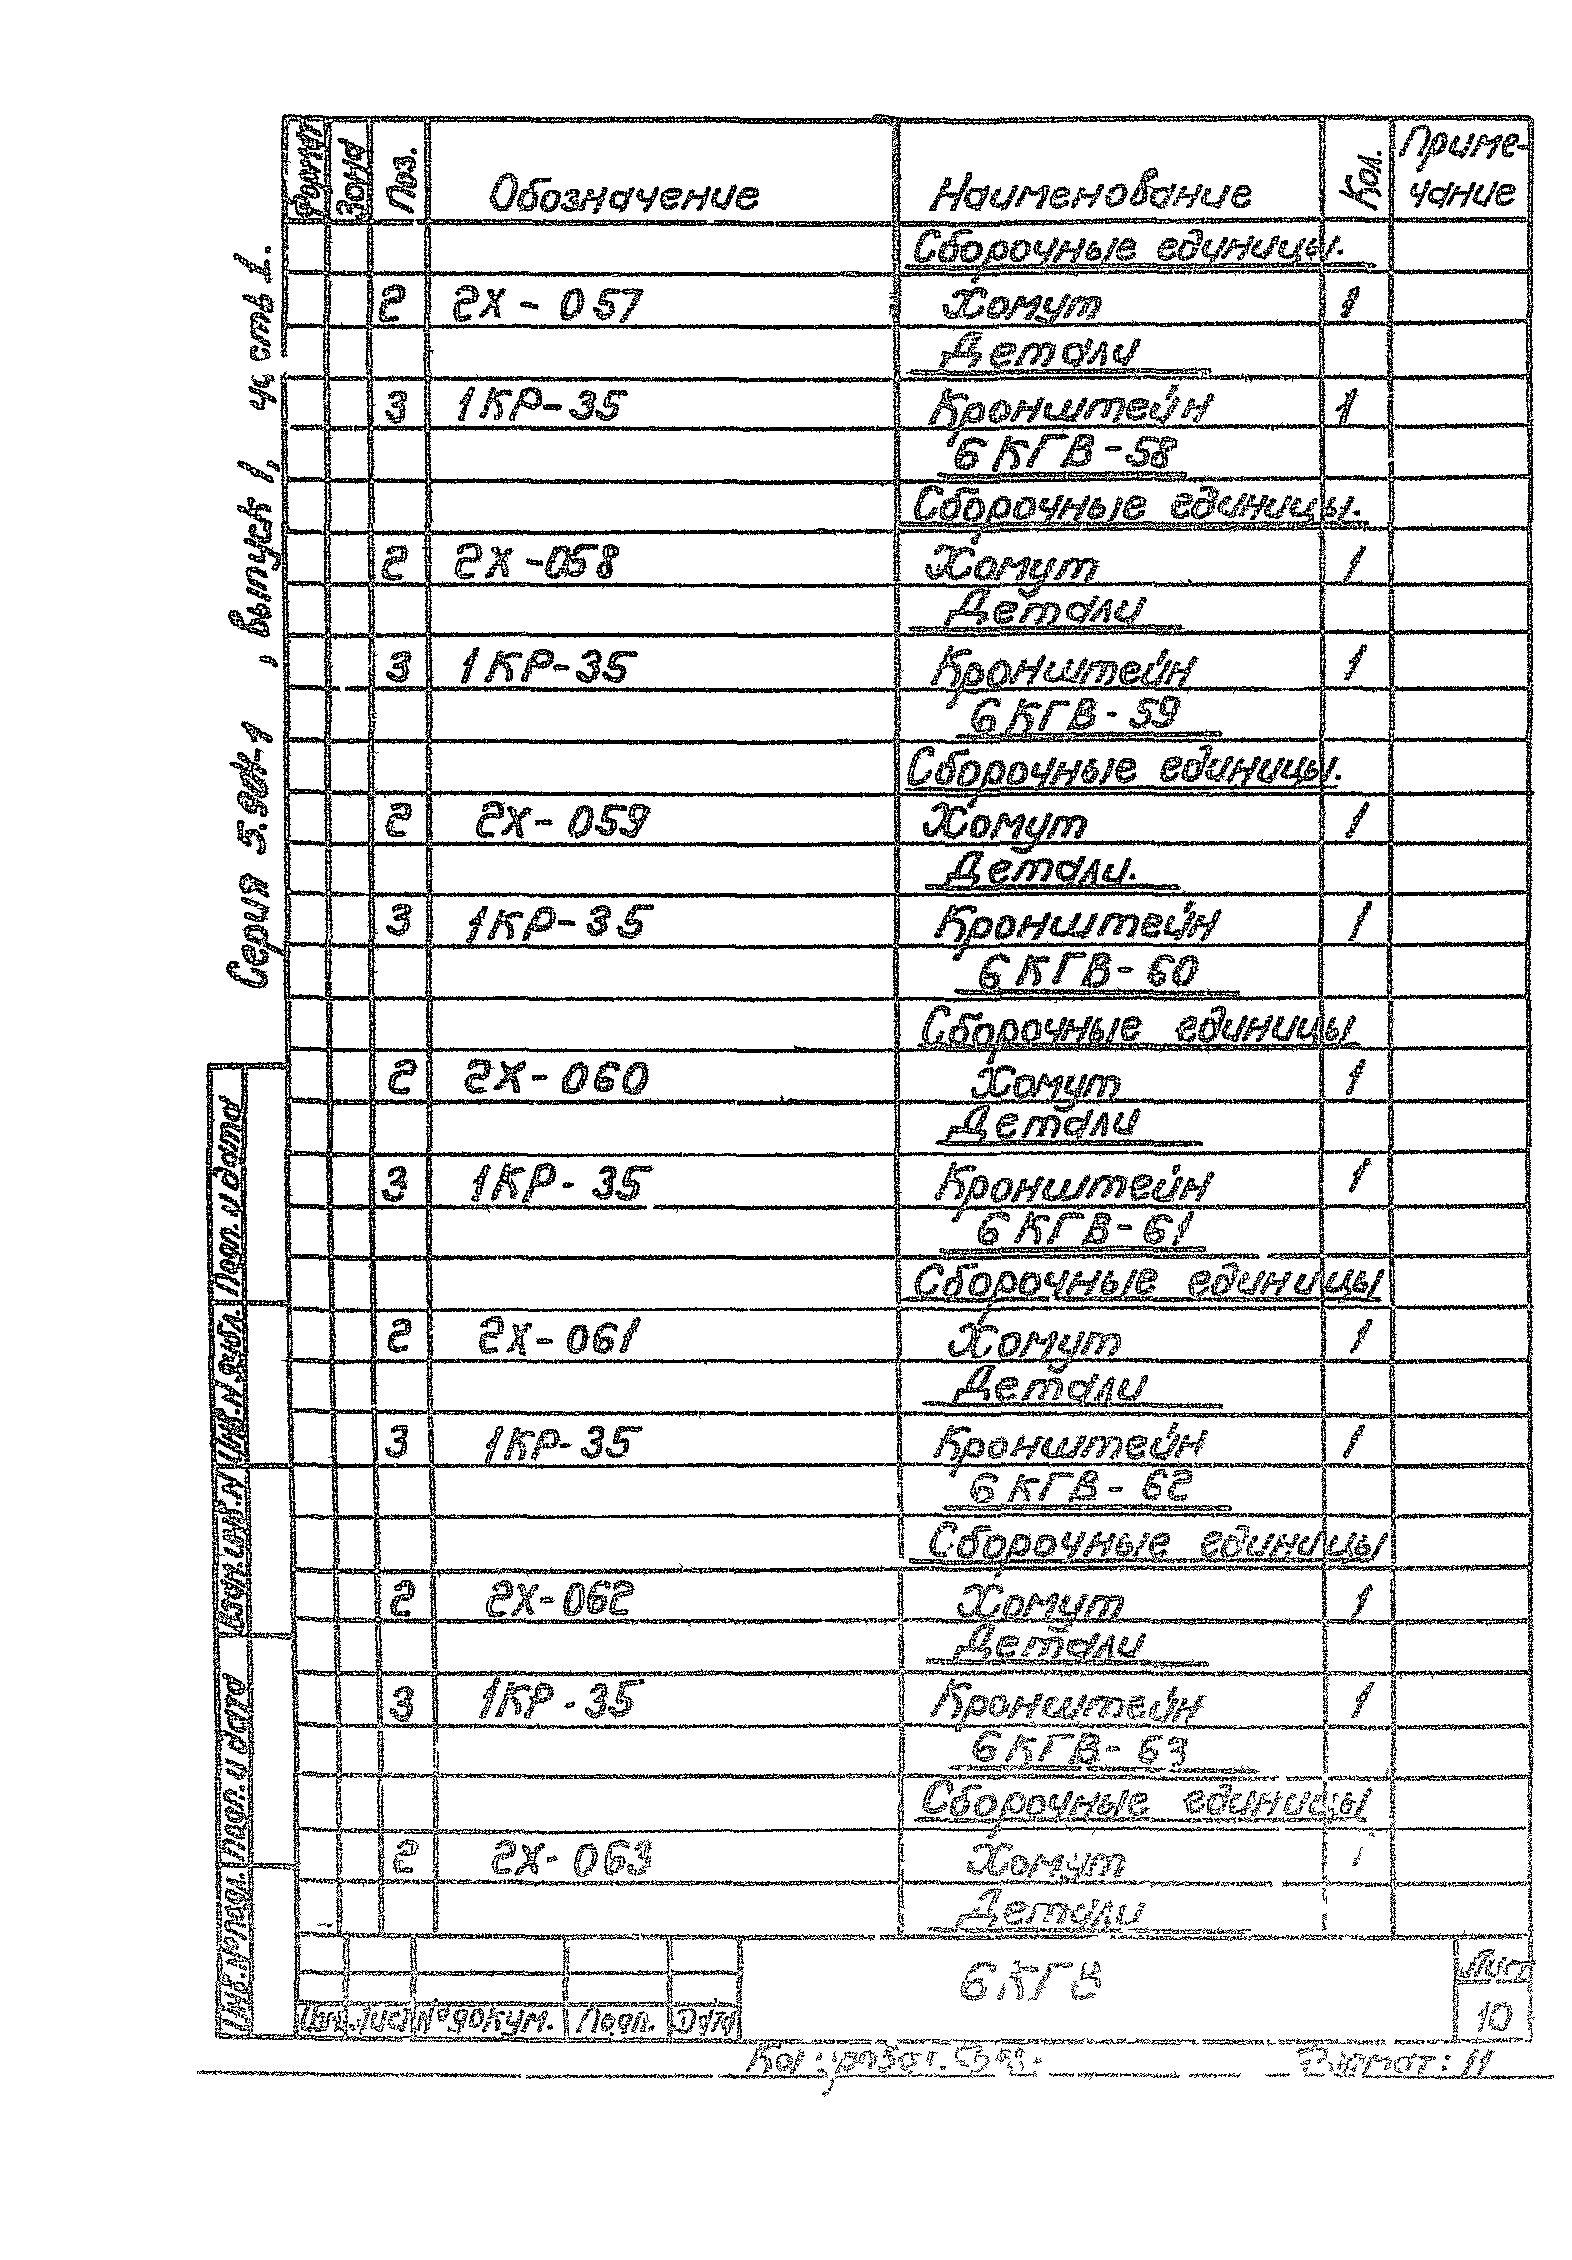 Формат Зона Поз. Обозначение Наименование Кол. Приме-
чание
Сборочные единицы.
2 2Х-057 Хомут 1
Детали
3 1КР-35 Кронштейн 1
6КГВ-58
Сборочные единицы.
2 2Х-058 Хомут 1
Детали
3 1КР-35 Кронштейн 1
6КГВ-59
Сборочные единицы.
2 2Х-059 Хомут 1
Детали.
3 1КР-35 Кронштейн 1
6КГВ-60
Сборочные единицы
2 2Х-060 Хомут 1
Детали
3 1КР-35 Кронштейн 1
6КГВ-61
Сборочные единицы
2 2Х-061 Хомут 1
Детали
3 1КР-35 Кронштейн 1
6КГВ-62
Сборочные единицы
2 2Х-062 Хомут 1
Детали
3 1КР-35 Кронштейн 1
6КГВ-63
Сборочные единицы
2 2Х-063 Хомут 1
Детали
Серия 5.904-1, выпуск 1, часть 1.
Инв.№подл. Подп. и дата Взам.инв.N Инв.N дубл. Подп. и дата
Изм. Лист №докум. Подп. Дата
6КГВ
Лист
10
Формат: 11